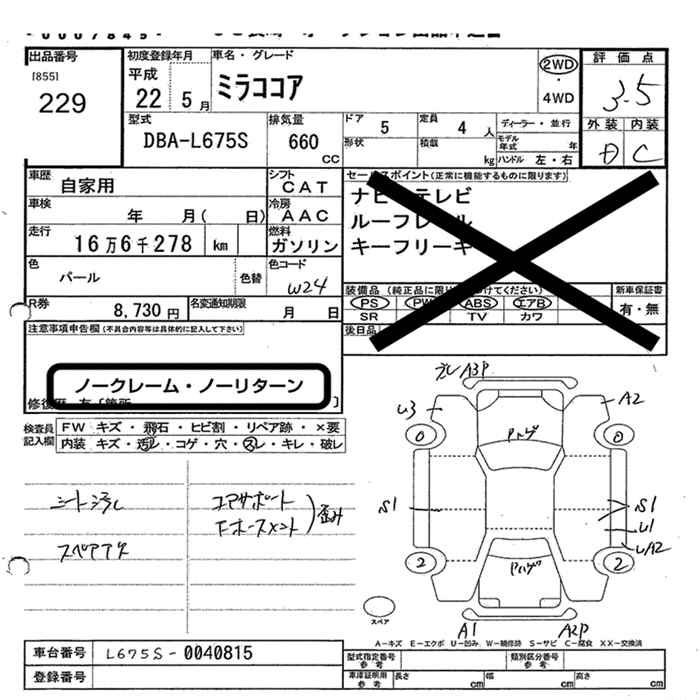 出品番号
[855]
229
初度登録年月
平成
22 5 月
車名・グレード
ミラココア
2WD
・
4WD
評価点
3.5
外装 内装
D C
型式
DBA-L675S
排気量
660
CC
ドア 5
定員 4 人
形状
積載 kg
ディーラー・並行
モデル年式 年
ハンドル 左・右
車歴 自家用
シフト CAT
車検 年 月( 日)
冷房 AAC
走行 16万6千278 km
燃料 ガソリン
色 パール 色替
色コード W24
R券 8,730 円
名変通知期限 月 日
セールスポイント(正常に機能するものに限ります)
ナビ テレビ
ルーフレール
キーフリーキ
装備品(純正品に限り 付けてください)
PS PW ABS エアB
SR TV カワ
後日品
新車保証書
有・無
注意事項申告欄(不具合内容等は具体的に記入して下さい)
ノークレーム・ノーリターン
修復歴 有[箇所 ]
検査員記入欄
FW キズ・飛石・ヒビ割・リペア跡・×要
内装 キズ・汚レ・コゲ・穴・スレ・キレ・破レ
シート汚レ
スペアアナ
コアサポート
Fホースメント
歪み
A3P
U3
A2
0
0
Pハゲ
S1
S1
U1
U/A2
2
2
Pハゲ
スペア
A1
A2P
A-キズ E-エクボ U-凹み W-補修跡 S-サビ C-腐食 XX-交換済
車台番号 L675S-0040815
登録番号
型式指定番号 参考
類別区分番号 参考
車庫証明用 参考
長さ cm
幅 cm
高さ cm